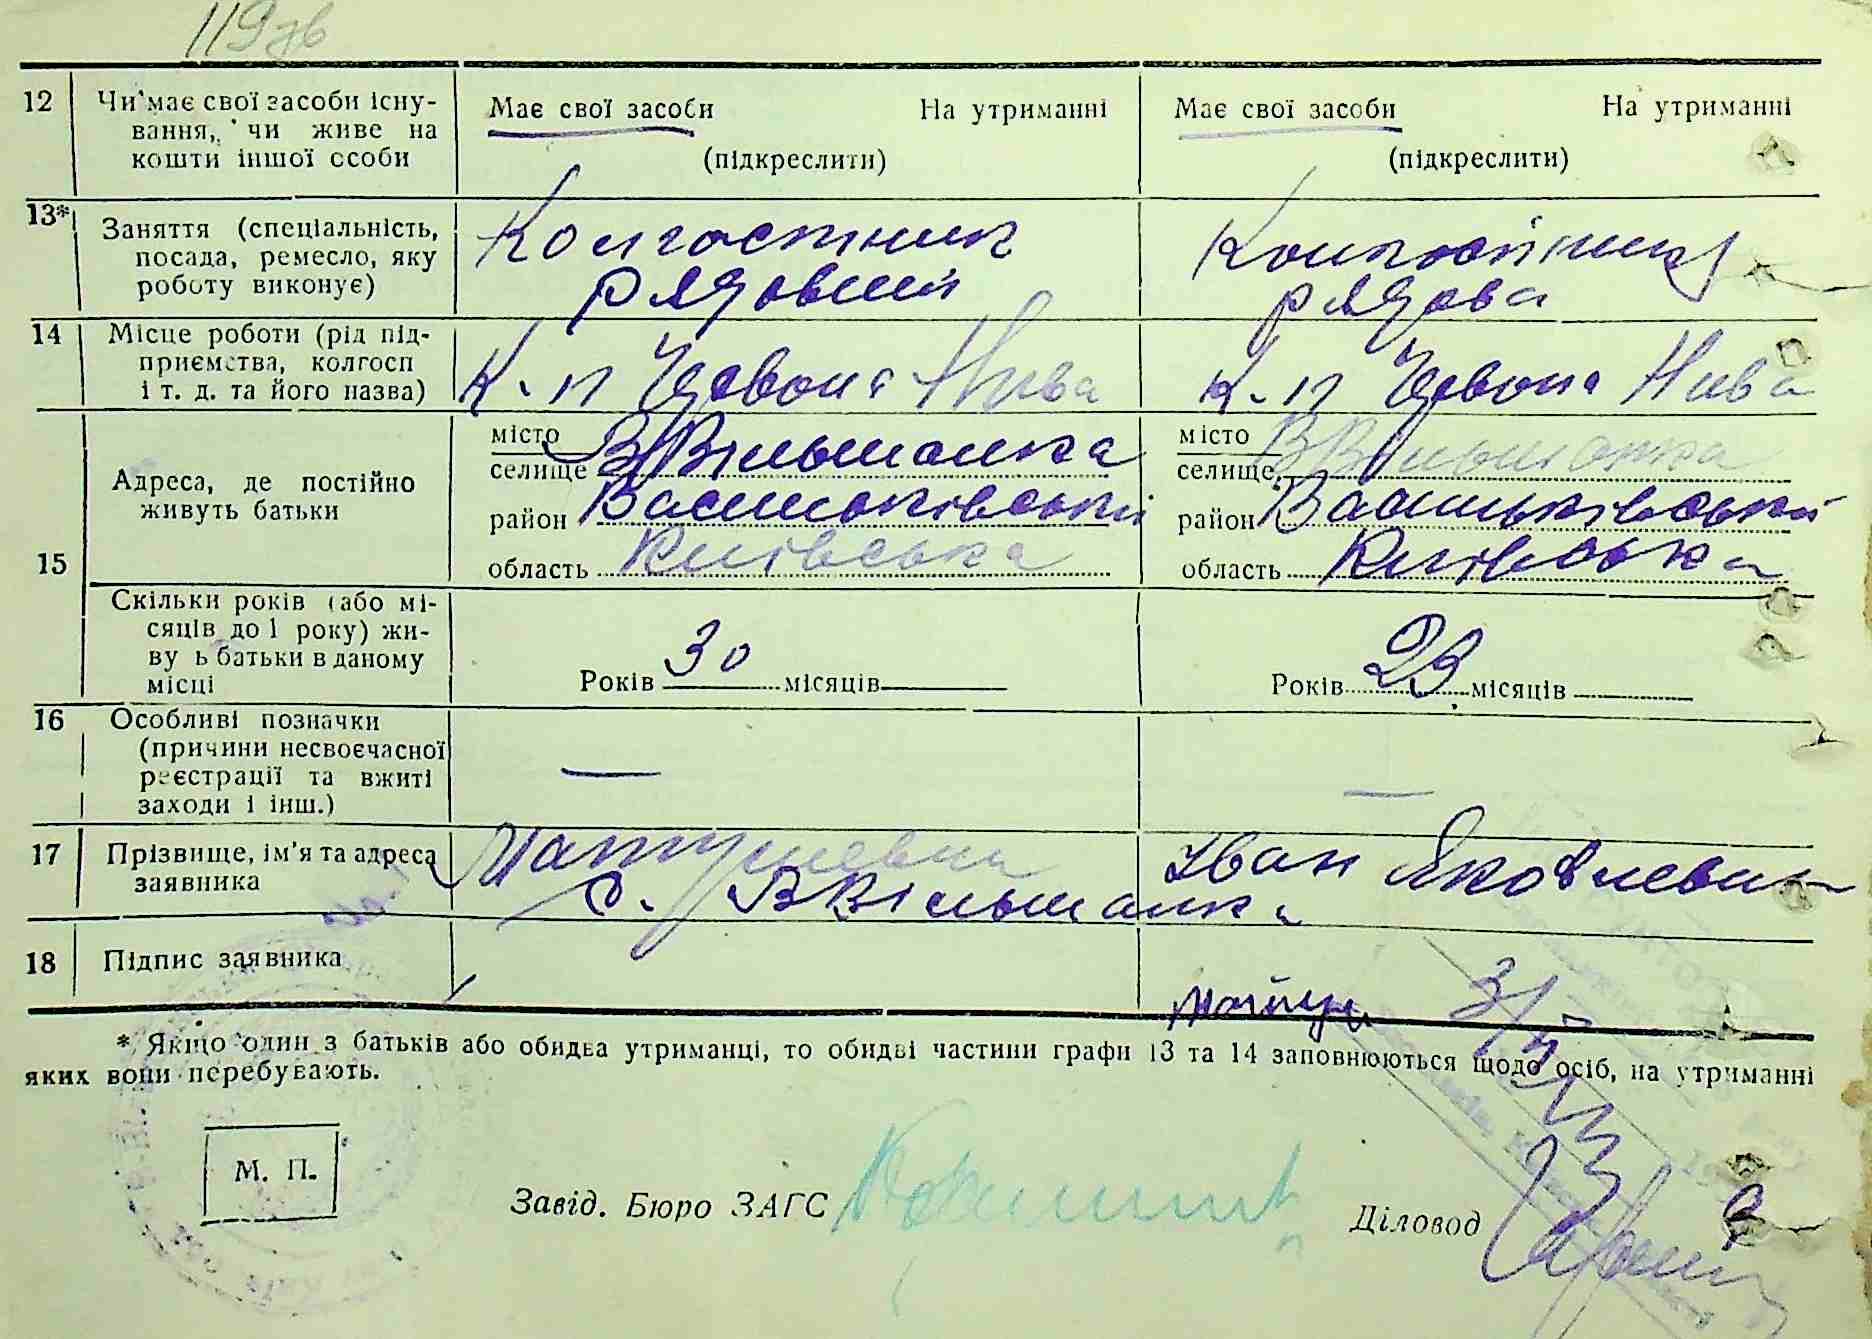 119зв
12 Чи має свої засоби існу- Має свої засоби На утриманні Має свої засоби На утриманні
вання, чи живе на
кошти іншої особи (підкреслити) (підкреслити)
13* Заняття (спеціальність, Колгостник Колгостниця
посада, ремесло, яку
роботу виконує) рядовий рядова
14 Місце роботи (рід під-
приємства, колгосп К-п Червона Нива К-п Червона Нива
і т. д. та його назва)
15 Адреса, де постійно
живуть батьки
місто
селище ВВільшанка
район Васильківський
область Київська
місто
селище ВВільшанка
район Васильківський
область Київська
Скільки років (або мі-
сяців до 1 року) жи-
ву ь батьки в даному
місці
Років 30 місяців
Років 23 місяців
16 Особливі позначки
(причини несвоєчасної
реєстрації та вжиті
заходи і інш.)
— —
17 Прізвище, ім'я та адреса Іван Яковлевич
заявника с. ВВільшанка
18 Підпис заявника
* Якщо один з батьків або обидва утриманці, то обидві частини графи 13 та 14 заповнюються щодо осіб, на утриманні
яких вони перебувають.
М. П.
Завід. Бюро ЗАГС
Діловод